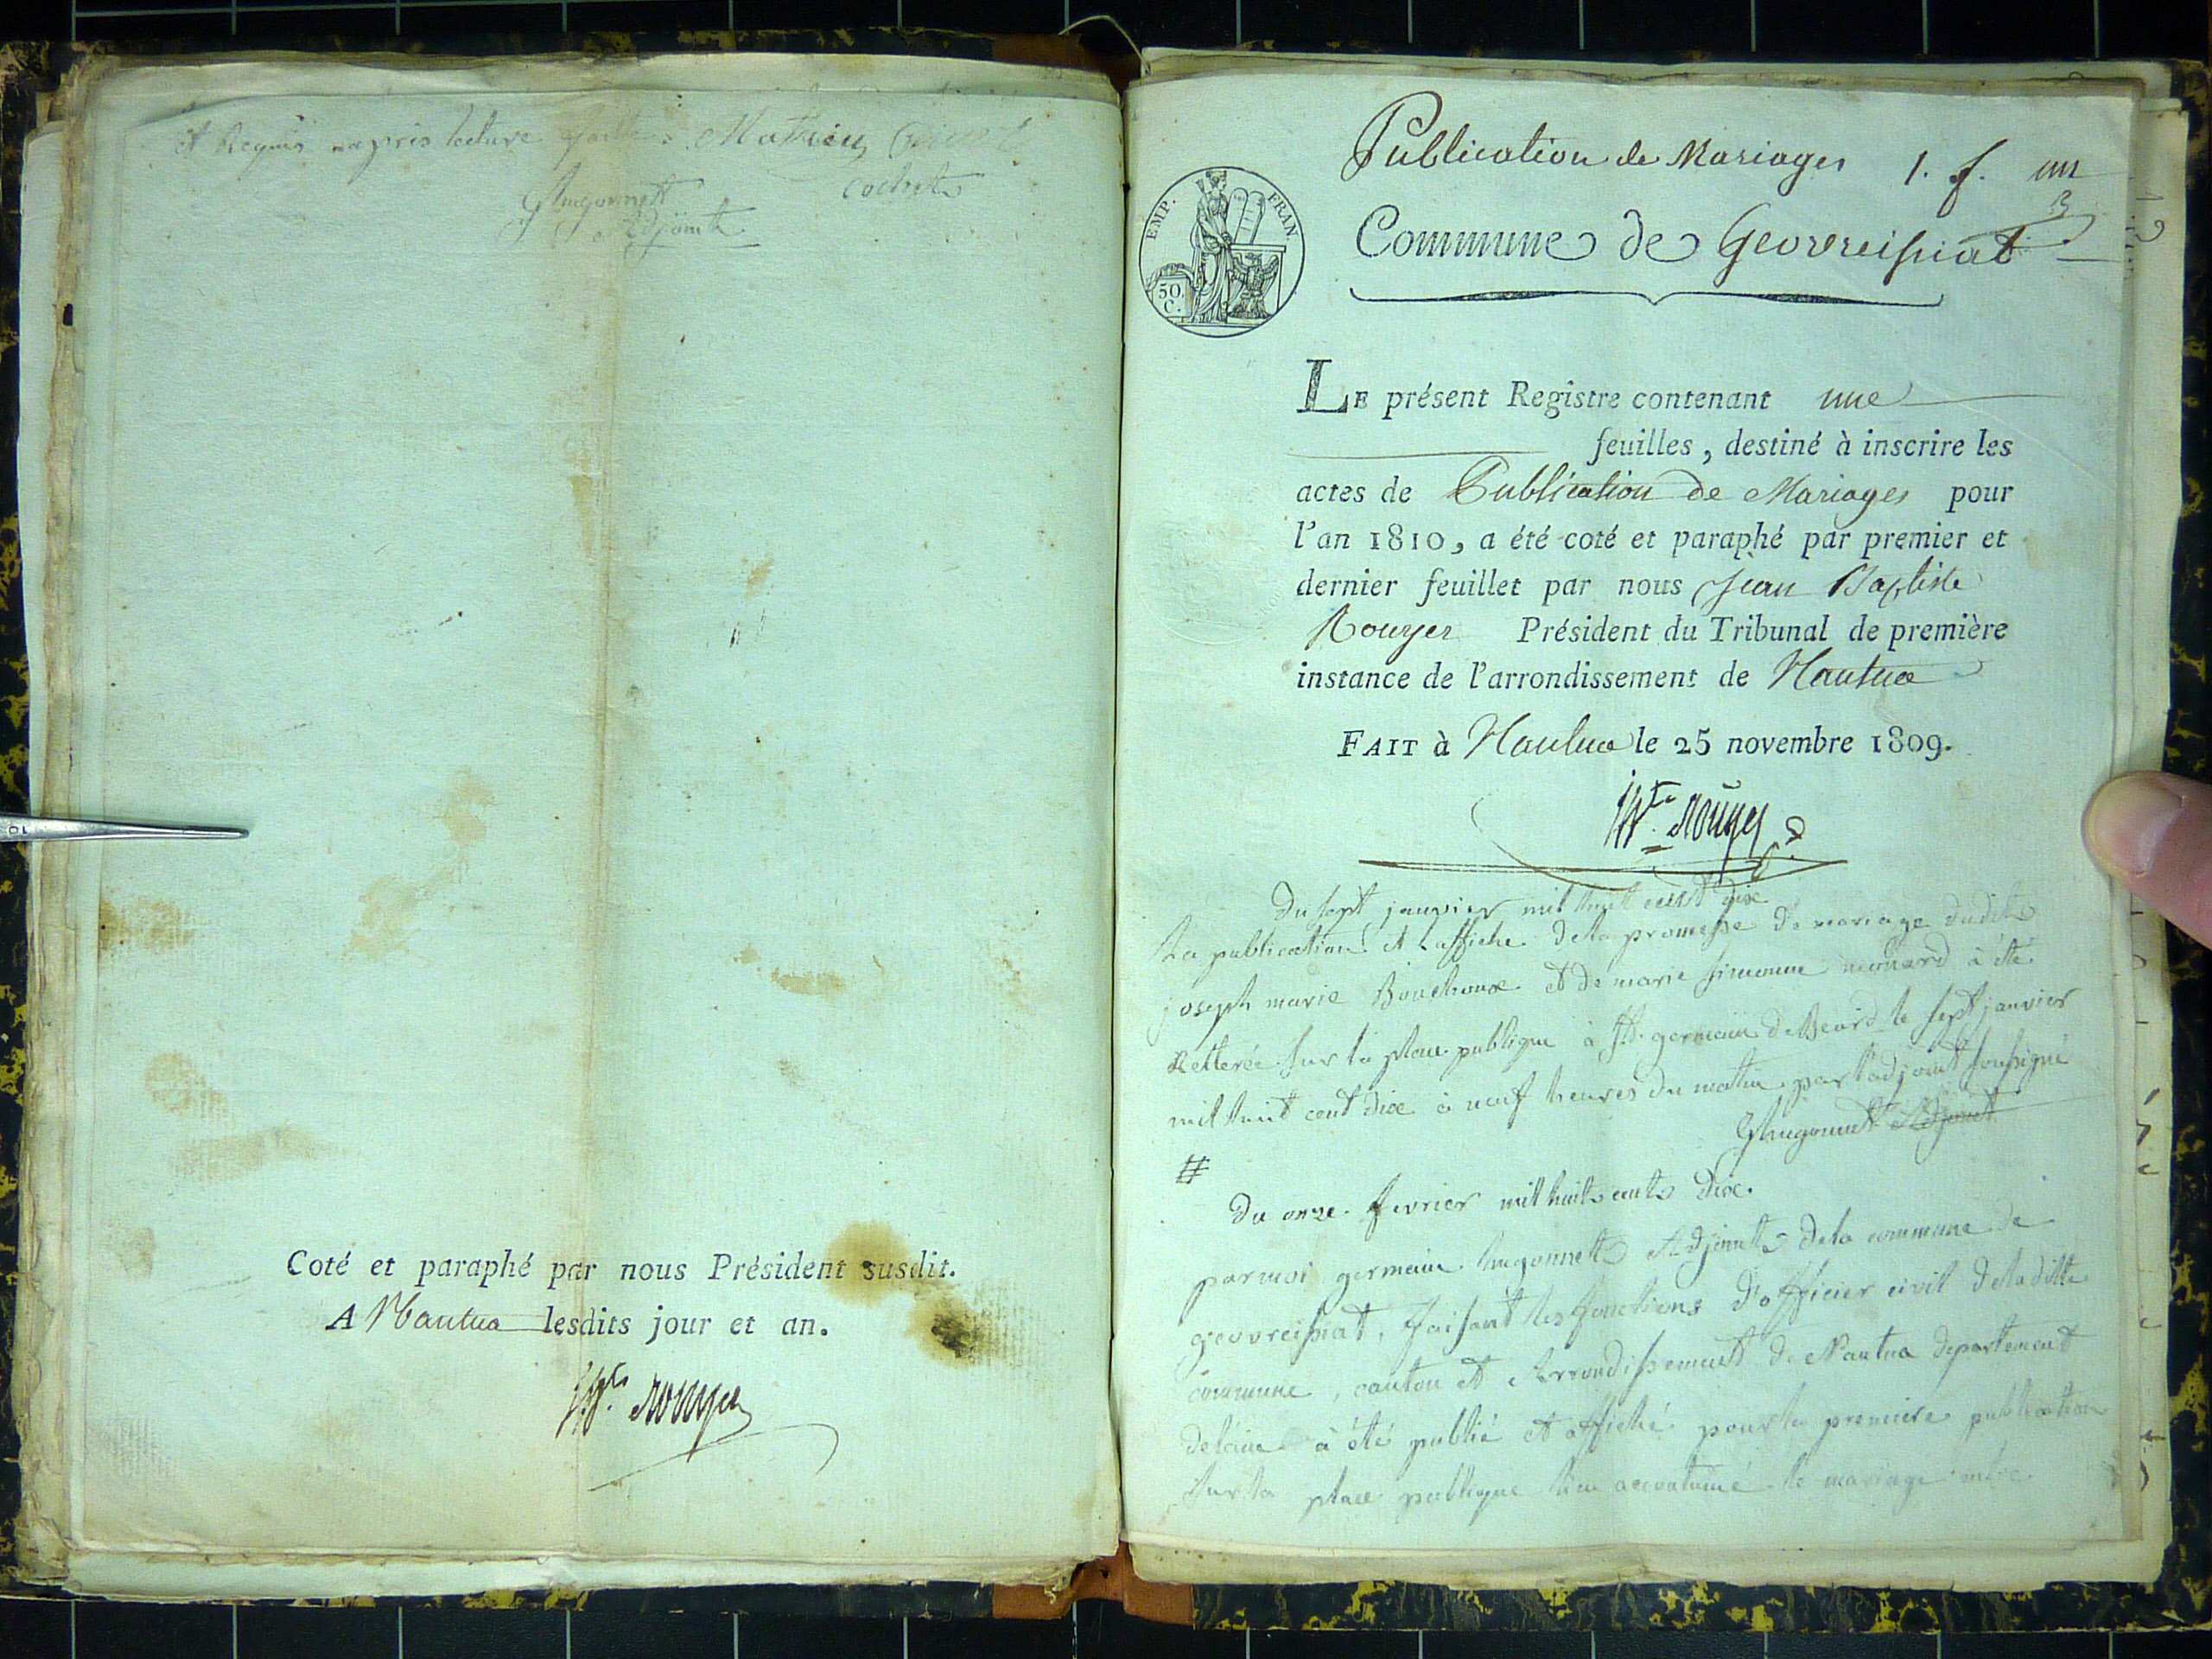 et Requis apris lecture faitte Mathieu
hugonnett cochet
Adjoint
Coté et paraphé par nous Président susdit.
A Nantua lesdits jour et an.
JBte Rouyer
Publication de Mariages 1. f. un
EMP. FRAN.
50 C.
Commune de Geovreissiat
LE présent Registre contenant une
feuilles, destiné à inscrire les
actes de Publication de Mariages pour
l'an 1810, a été coté et paraphé par premier et
dernier feuillet par nous Jean Baptiste
Rouyer Président du Tribunal de première
instance de l'arrondissement de Nantua
FAIT à Nantua le 25 novembre 1809.
JBte Rouyer
Du sept janvier mil huit cent dix
La publication et affiche de la promesse de mariage dudit
joseph marie Bouchoux et de marie simonne monard à été
Reiterée sur la place publique à St. germain de Beard le sept janvier
mil huit cent dix à neuf heures du matin par l'adjoint soussigné
Ghugonnett Adjoint
#
Du onze fevrier mil huit cents dix.
par moi germain hugonnett Adjoint de la commune de
geovreissiat, faisant les fonctions d'officier civil de la ditte
commune, canton et Arrondissement de Nantua departement
de lain à été publié et affiché pour la premiere publication
sur la place publique lieu accoutumé le mariage entre